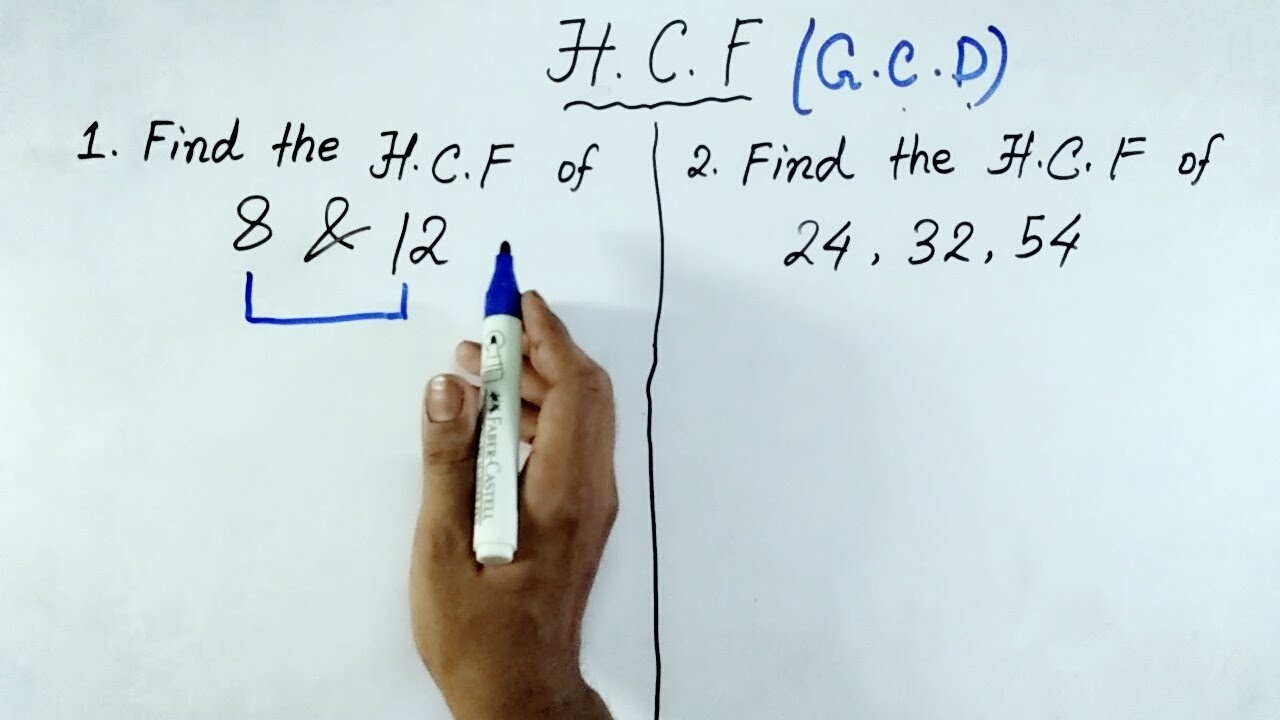 H.C.F (G.C.D)
1. Find the H.C.F of
8 & 12
2. Find the H.C.F of
24, 32, 54
FABER-CASTELL